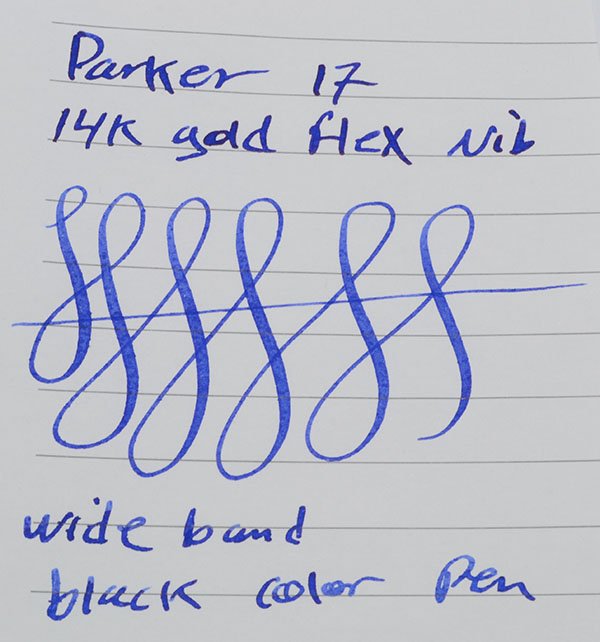 Parker 17
14K gold flex Nib
wide band
black color Pen